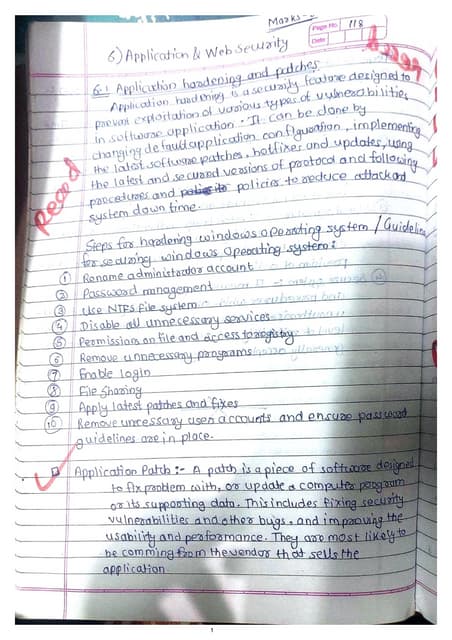 Marks-
Page No. 118
Date
6) Application & Web Security
Read
6.1 Application hardening and patches
Application hardening is a security feature designed to
prevent exploitation of various types of vulnerabilities
in software application. It can be done by
changing default application configuration, implementing
the latest software patches, hotfixes and updates, using
the latest and secured versions of protocol and following
procedures and policies to reduce attack and
system down time.
Read
Steps for hardening windows operating system / Guideline
for securing windows operating system:
① Rename administrator account
② Password management
③ Use NTFS File system
④ Disable all unnecessary services
⑤ Permissions on file and access to registry
⑥ Remove unnecessary programs
⑦ Enable login
⑧ File Sharing
⑨ Apply latest patches and fixes
⑩ Remove unncessary user accounts and ensure password
guidelines are in place.
Application Patch :- A patch is a piece of software designed
to fix problem with, or update a computer program
or its supporting data. This includes fixing security
vulnerabilities and other bugs, and improving the
usability and performance. They are most likely to
be comming from the vendor that sells the
application
1